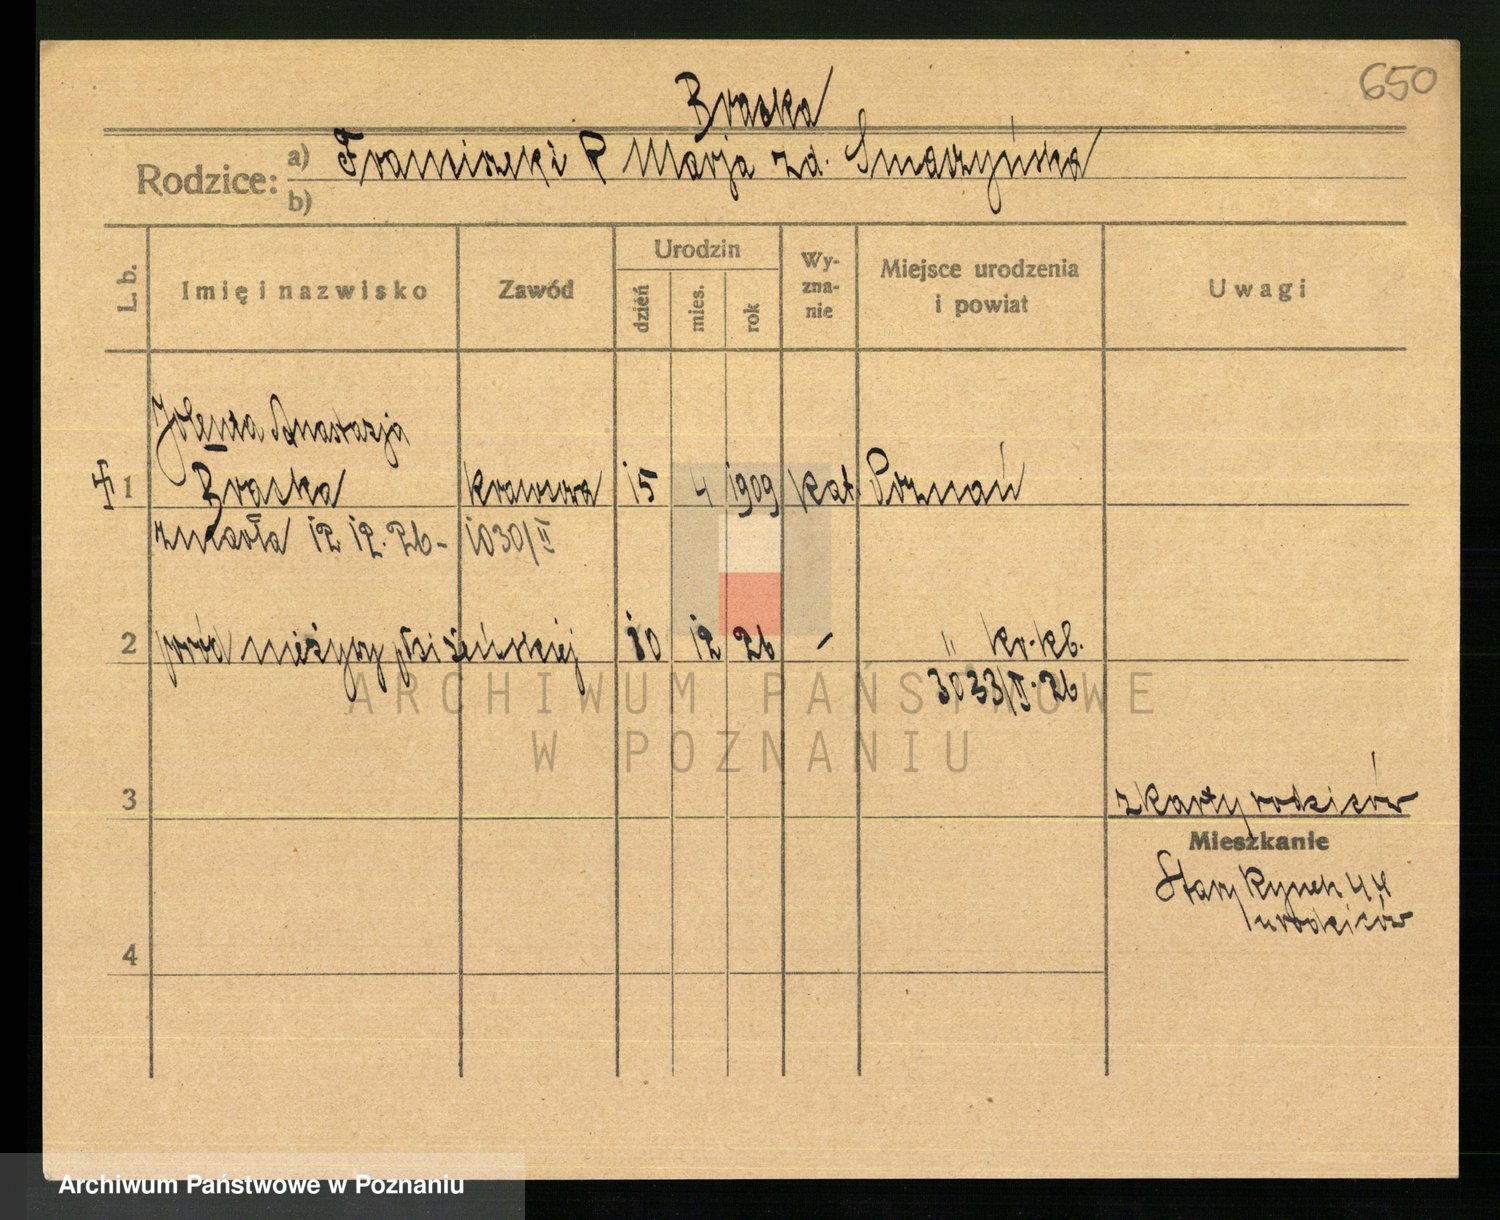 650
Braska
Rodzice: a) Franciszek i R Marja zd. Smarzyńska
b)
L. b. Imię i nazwisko Zawód Urodzin Wy-zna-nie Miejsce urodzenia i powiat Uwagi
dzień mies. rok
Jolenta Anastazja
1 Braska krawcowa 15 4 1909 kat. Poznań
zmarła 12 12. 26- 1030/II
2 płód nieżywy płci żeńskiej 10 12 26 - " kr. kb.
3033/II. 26
ARCHIWUM PAŃSTWOWE
W POZNANIU
3 z karty rodziców
Mieszkanie
Stary Rynek 44
u rodziców
4
Archiwum Państwowe w Poznaniu